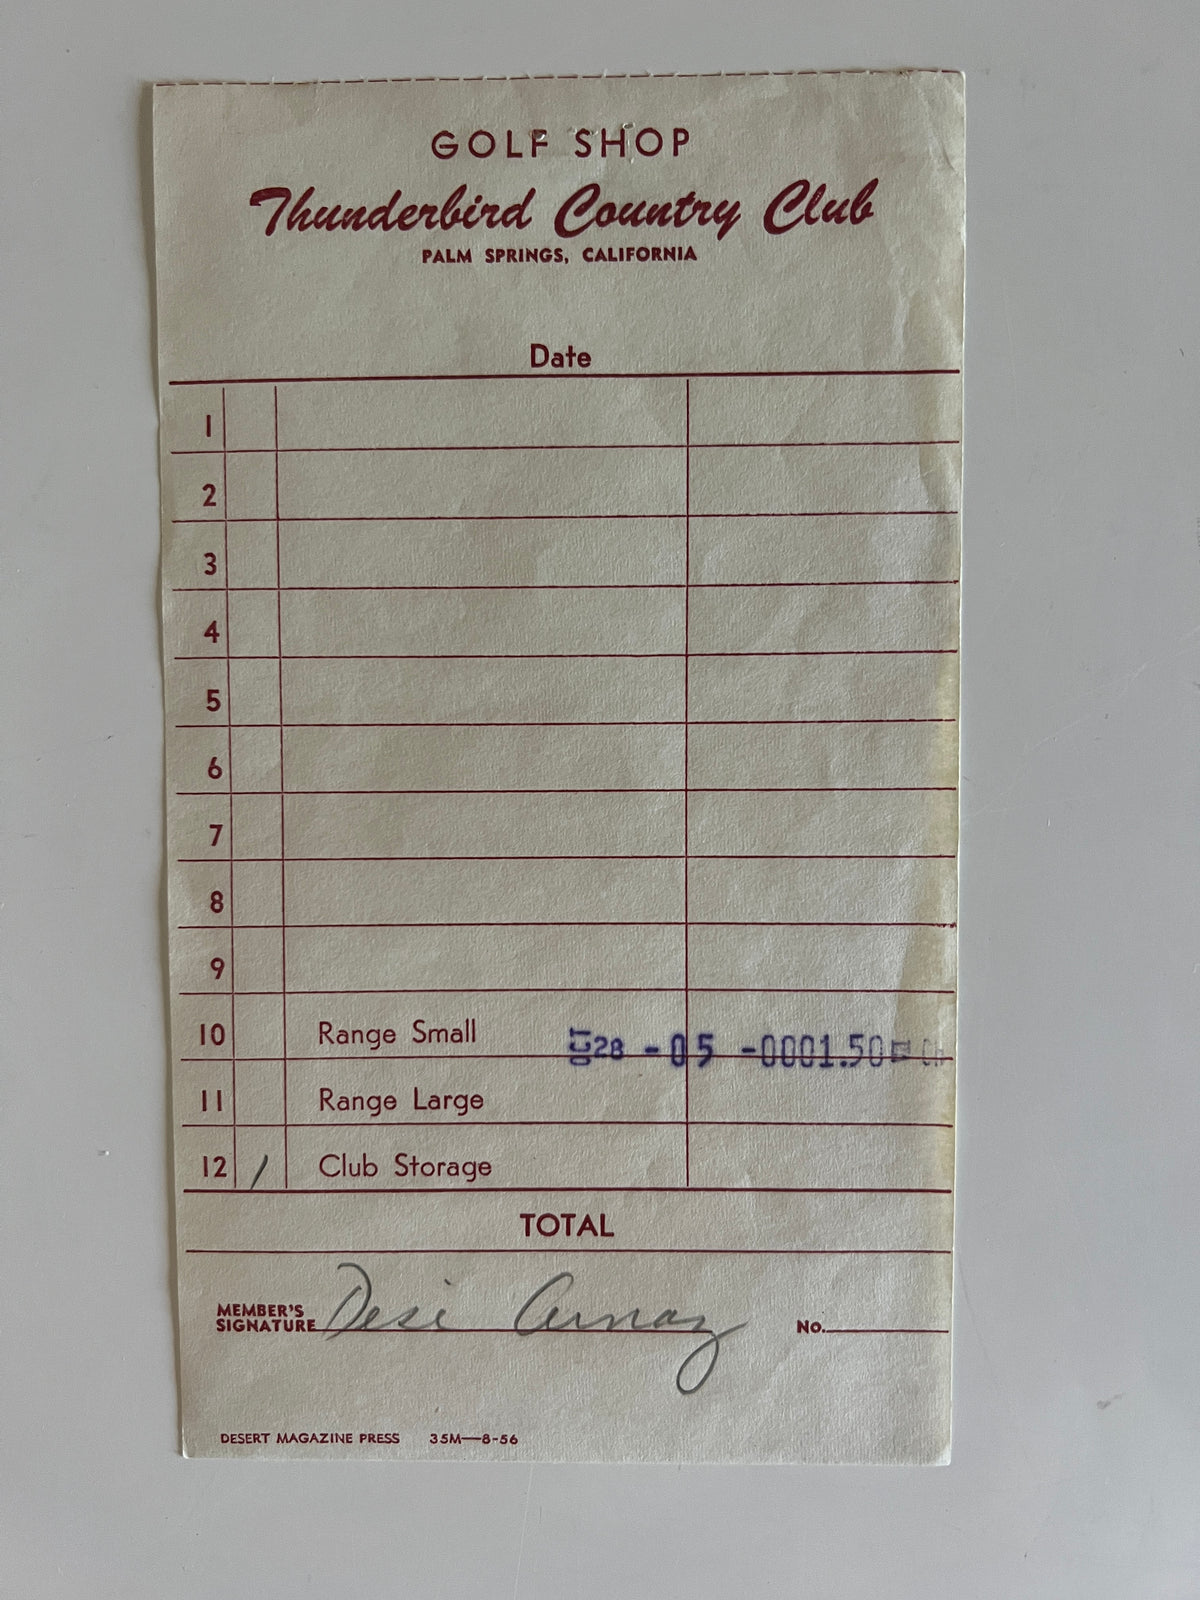 GOLF SHOP
Thunderbird Country Club
PALM SPRINGS, CALIFORNIA
Date
1
2
3
4
5
6
7
8
9
10 Range Small
OCT 28 -05 -0001.50
11 Range Large
12 / Club Storage
TOTAL
MEMBER'S SIGNATURE Desi Arnaz No.
DESERT MAGAZINE PRESS 35M—8-56